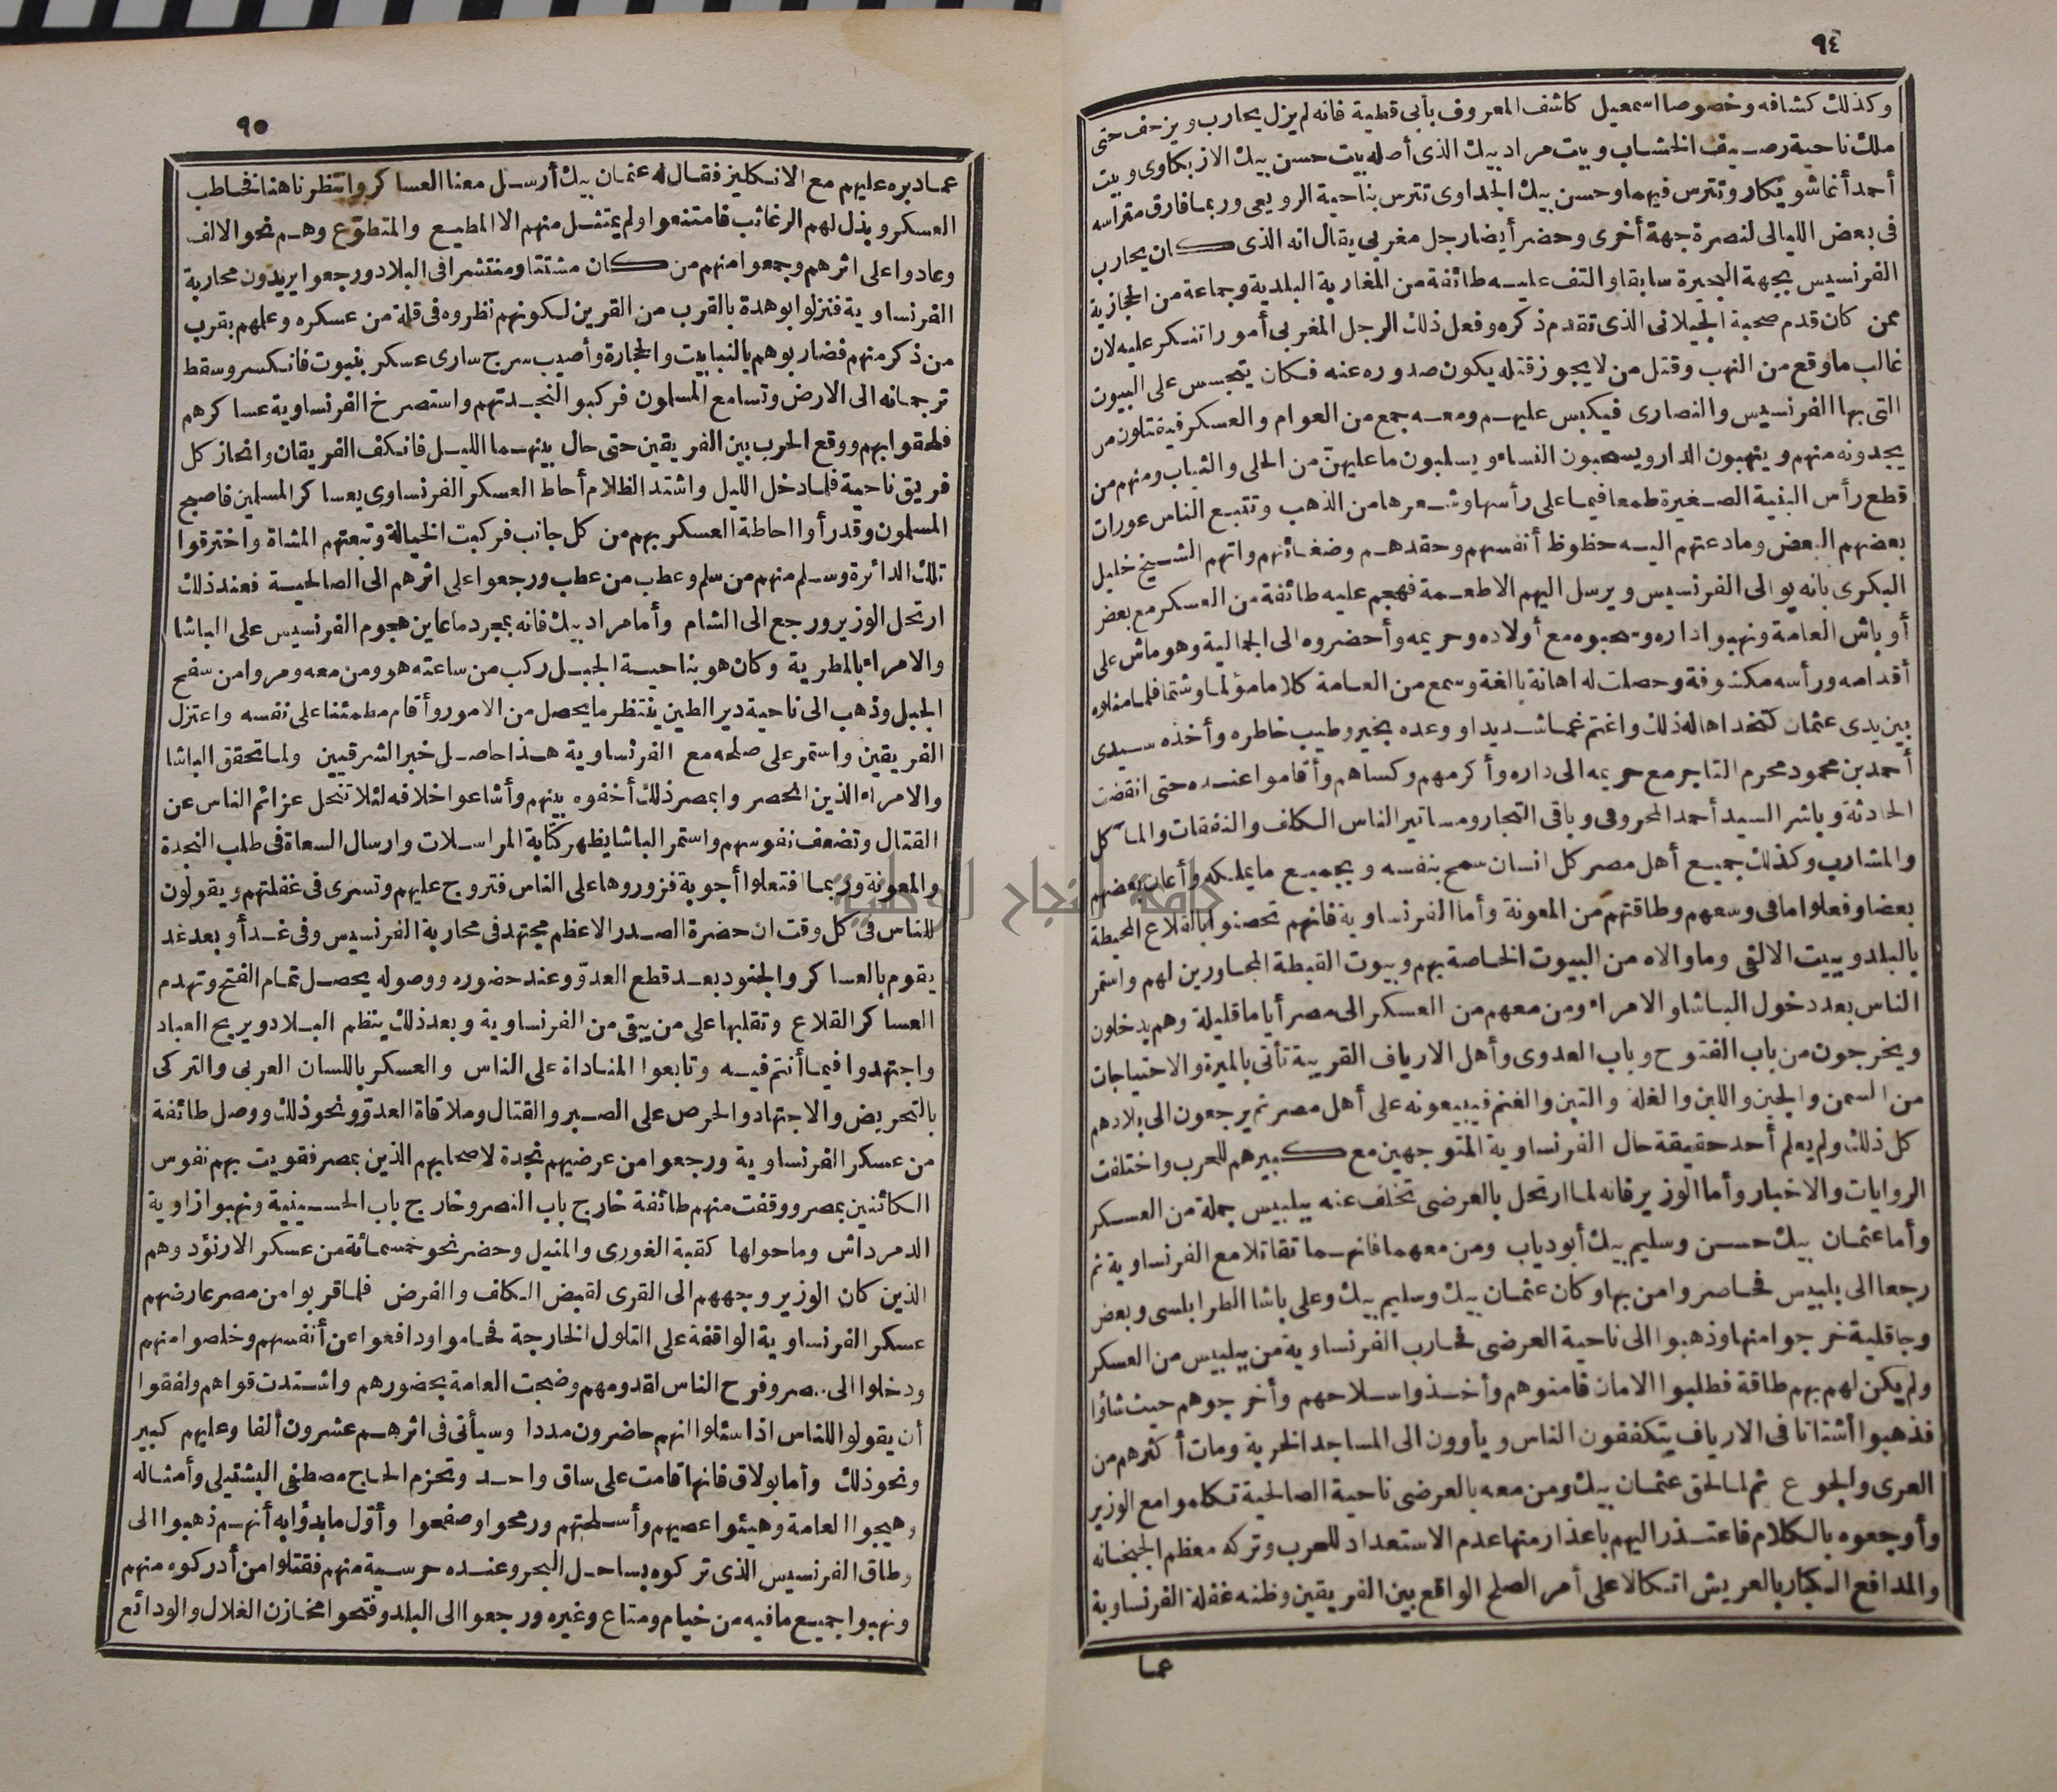 ٩٤
وكذلك كشافه وخصوصا اسمعيل كاشف المعروف بأبى قطية فانه لم يزل يحارب ويزحف حتى
ملك ناحية رصيف الخشاب وبيت مراد بيك الذى أصله بيت حسن بيك الازبكاوى وبيت
أحمد أغا شويكار وتترس فيهما وحسن بيك الجداوى تترس بناحية الرويعى وربما فارق متراسه
فى بعض الليالى لنصرة جهة أخرى وحضر أيضا رجل مغربى يقال انه الذى كان يحارب
الفرنسيس بجهة البحيرة سابقا والتف عليه طائفة من المغاربة البلدية وجماعة من الحجازية
ممن كان قدم صحبة الجيلانى الذى تقدم ذكره وفعل ذلك الرجل المغربى أمورا تنكر عليه لان
غالب ما وقع من النهب وقتل من لا يجوز قتله يكون صدوره عنه فكان يتجسس على البيوت
التى بها الفرنسيس والنصارى فيكبس عليهم ومعه جمع من العوام والعسكر فيقتلون من
يجدونه منهم وينهبون الدار ويسحبون النساء ويسلبون ما عليهن من الحلى والثياب ومنهم من
قطع رأس البنية الصغيرة طمعا فيما على رأسها وشعرها من الذهب وتتبع الناس عورات
بعضهم البعض وما دعتهم اليه حظوظ أنفسهم وحقدهم وضغائنهم واتهم الشيخ خليل
البكرى بانه يوالى الفرنسيس ويرسل اليهم الاطعمة فهجم عليه طائفة من العسكر مع بعض
أوباش العامة ونهبوا داره وسحبوه مع أولاده وحريمه وأحضروه الى الجمالية وهو ماش على
أقدامه ورأسه مكشوفة وحصلت له اهانة بالغة وسمع من العامة كلاما مؤلما وشتما فلما مثلوه
بين يدى عثمان كتخدا هاله ذلك واغتم غما شديدا ووعده بخير وطيب خاطره وأخذه سيدى
أحمد بن محمود محرم التاجر مع حريمه الى داره وأكرمهم وكساهم وأقاموا عنده حتى انقضت
الحادثة وباشر السيد أحمد المحروقى وباقى التجار ومساتير الناس الكلف والنفقات والمآكل
والمشارب وكذلك جميع أهل مصر كل انسان سمح بنفسه وبجميع ما يملكه وأعان بعضهم
بعضا وفعلوا ما فى وسعهم وطاقتهم من المعونة وأما الفرنساوية فانهم تحصنوا بالقلاع المحيطة
بالبلد وبيت الالفى وما والاه من البيوت الخاصة بهم وبيوت القبطة المجاورين لهم واستمر
الناس بعد دخول الباشا والامراء ومن معهم من العسكر الى مصر أياما قليلة وهم يدخلون
ويخرجون من باب الفتوح وباب العدوى وأهل الارياف القريبة تأتى بالميرة والاحتياجات
من السمن والجبن واللبن والغلة والتبن والغنم فيبيعونه على أهل مصر ثم يرجعون الى بلادهم
كل ذلك ولم يعلم أحد حقيقة حال الفرنساوية المتوجهين مع كبيرهم للحرب واختلفت
الروايات والاخبار وأما الوزير فانه لما ارتحل بالعرضى تخلف عنه ببلبيس جملة من العسكر
وأما عثمان بيك حسن وسليم بيك أبو دياب ومن معهما فانهما تقاتلا مع الفرنساوية ثم
رجعا الى بلبيس فحاصروا من بها وكان عثمان بيك وسليم بيك وعلى باشا الطرابلسى وبعض
وجاقلية خرجوا منها وذهبوا الى ناحية العرضى فحارب الفرنساوية من ببلبيس من العسكر
ولم يكن لهم بهم طاقة فطلبوا الامان فامنوهم وأخذوا سلاحهم وأخرجوهم حيث شاؤا
فذهبوا أشتاتا فى الارياف يتكففون الناس ويأوون الى المساجد الخربة ومات أكثرهم من
العرى والجوع ثم لما لحق عثمان بيك ومن معه بالعرضى ناحية الصالحية تكلموا مع الوزير
وأوجعوه بالكلام فاعتذر اليهم باعذار منها عدم الاستعداد للحرب وتركه معظم الجبخانه
والمدافع الكبار بالعريش اتكالا على أمر الصلح الواقع بين الفريقين وظنه غفلة الفرنساوية
عما
٩٥
عما دبره عليهم مع الانكليز فقال له عثمان بيك أرسل معنا العساكر وانتظرنا هنا فخاطب
العسكر وبذل لهم الرغائب فامتنعوا ولم يمتثل منهم الا المطيع والمتطوع وهم نحو الالف
وعادوا على اثرهم وجمعوا منهم من كان مشتتا ومنتشرا فى البلاد ورجعوا يريدون محاربة
الفرنساوية فنزلوا بوهدة بالقرب من القرين لكونهم نظروه فى قلة من عسكره وعلمهم بقرب
من ذكر منهم فضاربوهم بالنبابيت والحجارة وأصيب سرج سارى عسكر بنبوت فانكسر وسقط
ترجمانه الى الارض وتسامع المسلمون فركبوا لنجدتهم واستصرخ الفرنساوية عساكرهم
فلحقوا بهم ووقع الحرب بين الفريقين حتى حال بينهما الليل فانكف الفريقان وانحاز كل
فريق ناحية فلما دخل الليل واشتد الظلام أحاط العسكر الفرنساوى بعساكر المسلمين فاصبح
المسلمون وقد رأوا احاطة العسكر بهم من كل جانب فركبت الخيالة وتبعتهم المشاة واخترقوا
تلك الدائرة وسلم منهم من سلم وعطب من عطب ورجعوا على اثرهم الى الصالحية فعند ذلك
ارتحل الوزير ورجع الى الشام وأما مراد بيك فانه بمجرد ما عاين هجوم الفرنسيس على الباشا
والامراء بالمطرية وكان هو بناحية الجبل ركب من ساعته هو ومن معه ومروا من سفح
الجبل وذهب الى ناحية دير الطين ينتظر ما يحصل من الامور وأقام مطمئنا على نفسه واعتزل
الفريقين واستمر على صلحه مع الفرنساوية هذا حاصل خبر الشرقيين ولما تحقق الباشا
والامراء الذين انحصروا بمصر ذلك أخفوه بينهم وأشاعوا خلافه لئلا تنحل عزائم الناس عن
القتال وتضعف نفوسهم واستمر الباشا يظهر كتابة المراسلات وارسال السعاة فى طلب النجدة
والمعونة وربما افتعلوا أجوبة فزوروها على الناس فتروج عليهم وتسرى فى غفلتهم ويقولون
للناس فى كل وقت ان حضرة الصدر الاعظم مجتهد فى محاربة الفرنسيس وفى غد أو بعد غد
يقوم بالعساكر والجنود بعد قطع العدوّ وعند حضوره ووصوله يحصل تمام الفتح وتهدم
العساكر القلاع وتقلبها على من يبقى من الفرنساوية وبعد ذلك ينظم البلاد ويريح العباد
واجتهدوا فيما أنتم فيه وتابعوا المناداة على الناس والعسكر باللسان العربى والتركى
بالتحريض والاجتهاد والحرص على الصبر والقتال وملاقاة العدوّ ونحو ذلك ووصل طائفة
من عسكر الفرنساوية ورجعوا من عرضيهم نجدة لاصحابهم الذين بمصر فقويت بهم نفوس
الكائنين بمصر ووقفت منهم طائفة خارج باب النصر وخارج باب الحسينية ونهبوا زاوية
الدمرداش وما حولها كقبة الغورى والمنيل وحضر نحو خمسمائة من عسكر الارنؤد وهم
الذين كان الوزير وجههم الى القرى لقبض الكلف والفرض فلما قربوا من مصر عارضهم
عسكر الفرنساوية الواقفة على التلول الخارجة فحاموا ودافعوا عن أنفسهم وخلصوا منهم
ودخلوا الى مصر وفرح الناس لقدومهم وضجت العامة بحضورهم واشتدت قواهم ولفقوا
أن يقولوا للناس اذا سئلوا انهم حاضرون مددا وسيأتى فى اثرهم عشرون ألفا وعليهم كبير
ونحو ذلك وأما بولاق فانها قامت على ساق واحد وتحزم الحاج مصطفى البشتيلى وأمثاله
وهيجوا العامة وهيئوا عصيهم وأسلحتهم ورمحوا وصفحوا وأوّل ما بدؤا به أنهم ذهبوا الى
وطاق الفرنسيس الذى تركوه بساحل البحر وعنده حرسية منهم فقتلوا من أدركوه منهم
ونهبوا جميع ما فيه من خيام ومتاع وغيره ورجعوا الى البلد وفتحوا مخازن الغلال والودائع